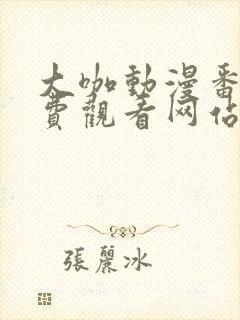 大咖動漫番
費觀看网佔
張麗冰